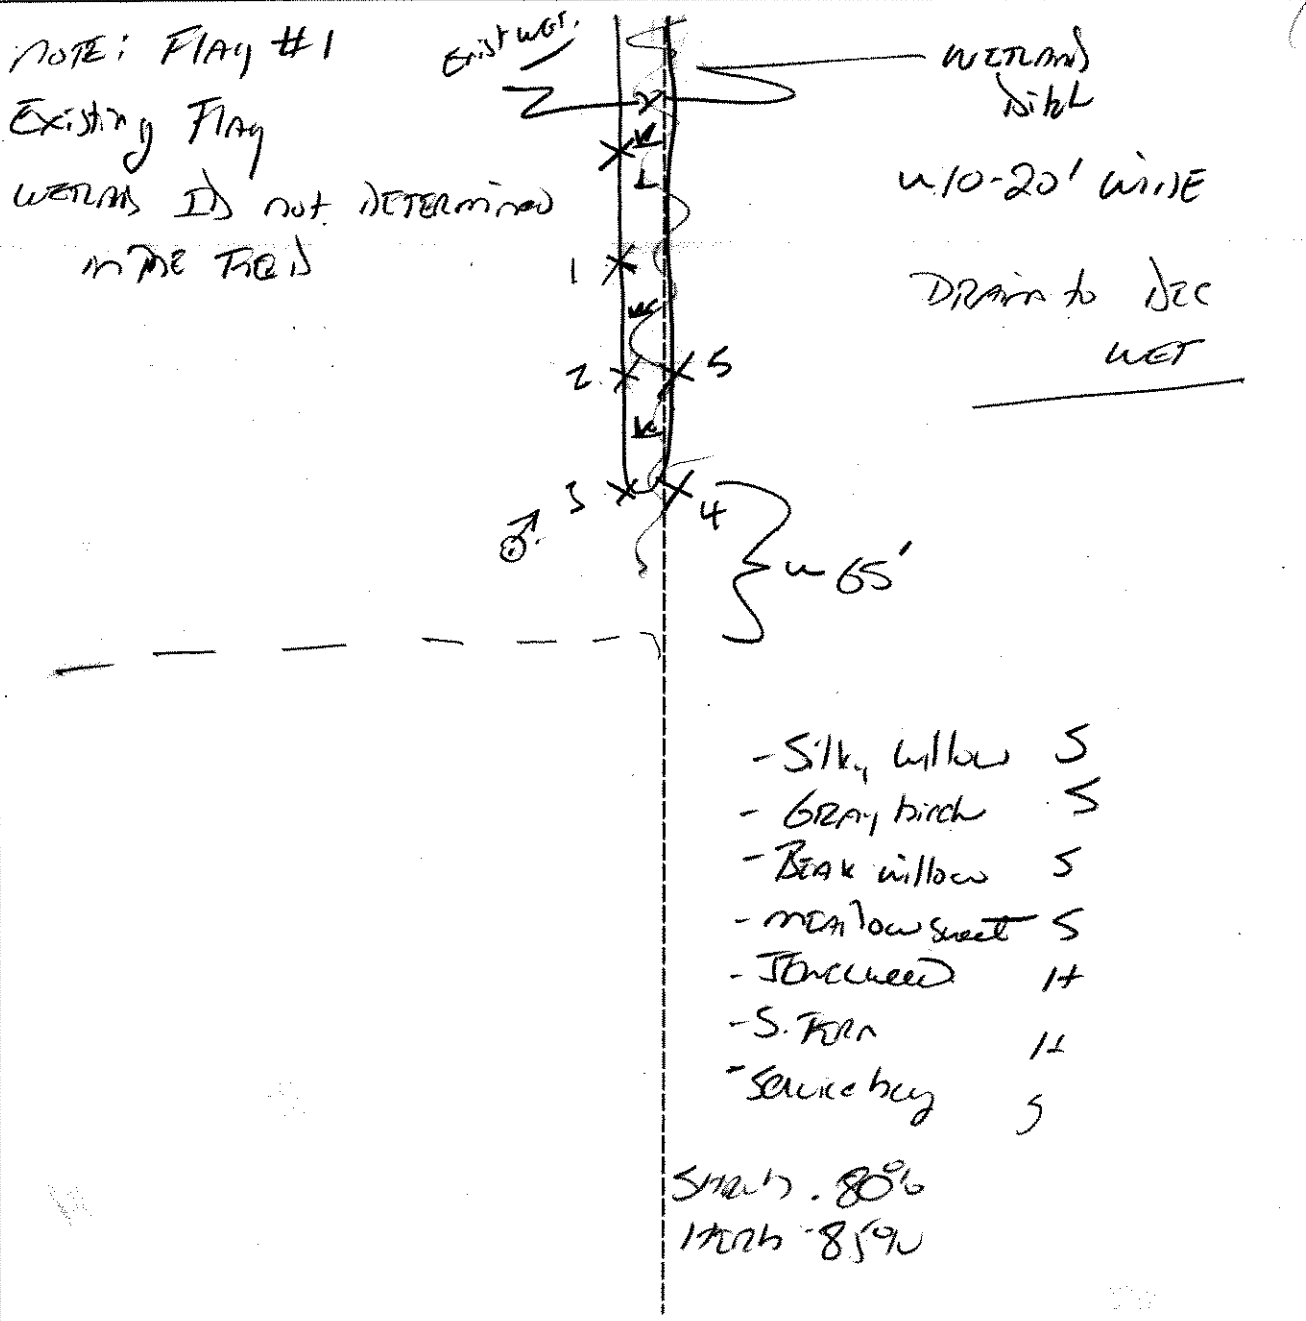 NOTE: Flag #1
Existing Flag
WETLAND ID not DETERMINED
in THE FIELD
Exist WET.
WETLAND
Ditch
~10-20' WIDE
DRAIN to DEC
WET
1
2
5
3
4
~65'
- Silky willow S
- GRAY birch S
- BEAK willow S
- MEADOWSweet S
- JEWELWEED H
- S. FERN H
- Service bery S
Shrub . 80%
HERB - 85%